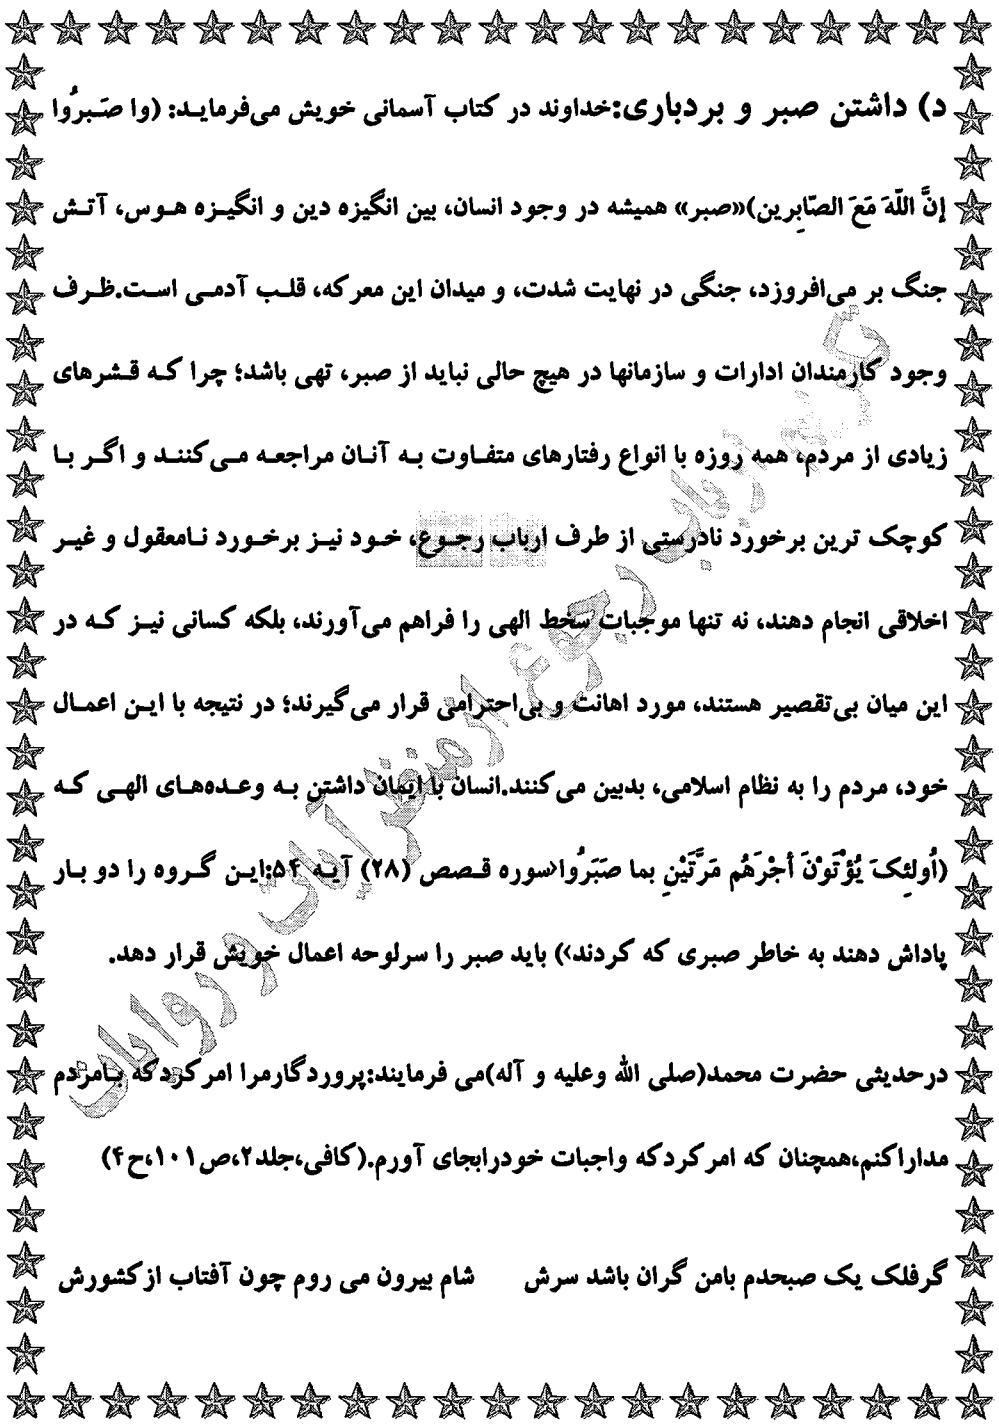 د) داشتن صبر و بردباری:خداوند در کتاب آسمانی خویش می‌فرماید: (وا صَبرُوا
إنَّ اللّهَ مَعَ الصّابِرین)«صبر» همیشه در وجود انسان، بین انگیزه دین و انگیزه هوس، آتش
جنگ بر می‌افروزد، جنگی در نهایت شدت، و میدان این معرکه، قلب آدمی است.ظرف
وجود کارمندان ادارات و سازمانها در هیچ حالی نباید از صبر، تهی باشد؛ چرا که قشرهای
زیادی از مردم، همه روزه با انواع رفتارهای متفاوت به آنان مراجعه می‌کنند و اگر با
کوچک ترین برخورد نادرستی از طرف ارباب رجوع، خود نیز برخورد نامعقول و غیر
اخلاقی انجام دهند، نه تنها موجبات سخط الهی را فراهم می‌آورند، بلکه کسانی نیز که در
این میان بی‌تقصیر هستند، مورد اهانت و بی‌احترامی قرار می‌گیرند؛ در نتیجه با این اعمال
خود، مردم را به نظام اسلامی، بدبین می‌کنند.انسان با ایمان داشتن به وعده‌های الهی که
(اُولئِکَ یُؤْتَوْنَ أجْرَهُم مَرَّتَیْنِ بما صَبَرُوا‹سوره قصص (۲۸) آیه ۵۴:این گروه را دو بار
پاداش دهند به خاطر صبری که کردند›) باید صبر را سرلوحه اعمال خویش قرار دهد.
درحدیثی حضرت محمد(صلی الله وعلیه و آله)می فرمایند:پروردگارمرا امرکردکه بامردم
مداراکنم،همچنان که امرکردکه واجبات خودرابجای آورم.(کافی،جلد۲،ص۱۰۱،ح۴)
گرفلک یک صبحدم بامن گران باشد سرش شام بیرون می روم چون آفتاب ازکشورش
تکریم ارباب رجوع ازمنظر آیات و روایات